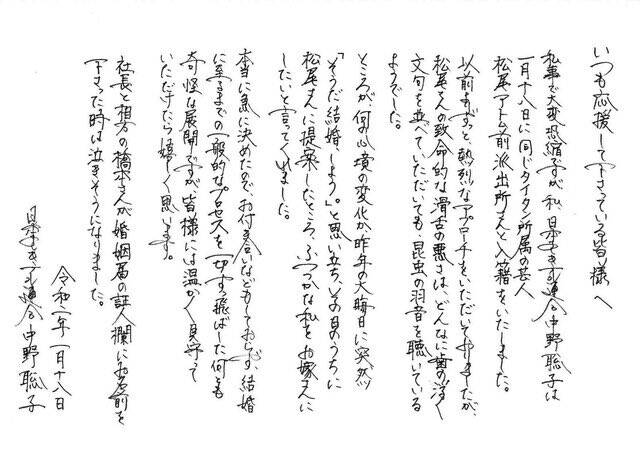 いつも応援して下さっている皆様へ
私事で大変恐縮ですが、私、日本エレキテル連合中野聡子は
一月十八日に同じタイタン所属の芸人
松尾アトム前派出所さんと入籍をいたしました。
以前よりずっと、熱烈なアプローチをいただいておりましたが、
松尾さんの致命的な滑舌の悪さは、どんなに歯の浮く
文句を並べていただいても、昆虫の羽音を聴いている
ようでした。
ところが、何の心境の変化か昨年の大晦日に突然
「そうだ結婚しよう」。と思い立ち、その日のうちに
松尾さんに提案したところ、ふつつかな私をお嫁さんに
したいと言ってくれました。
本当に急に決めたので、お付き合いなどもしておらず、結婚
に至るまでの一般的なプロセスを一切すっ飛ばした何とも
奇怪な展開ですが、皆様には温かく見守って
いただけたら嬉しく思います。
社長と相方の橋本さんが婚姻届の証人欄にお名前を
下さった時は泣きそうになりました。
令和二年一月十八日
日本エレキテル連合 中野聡子